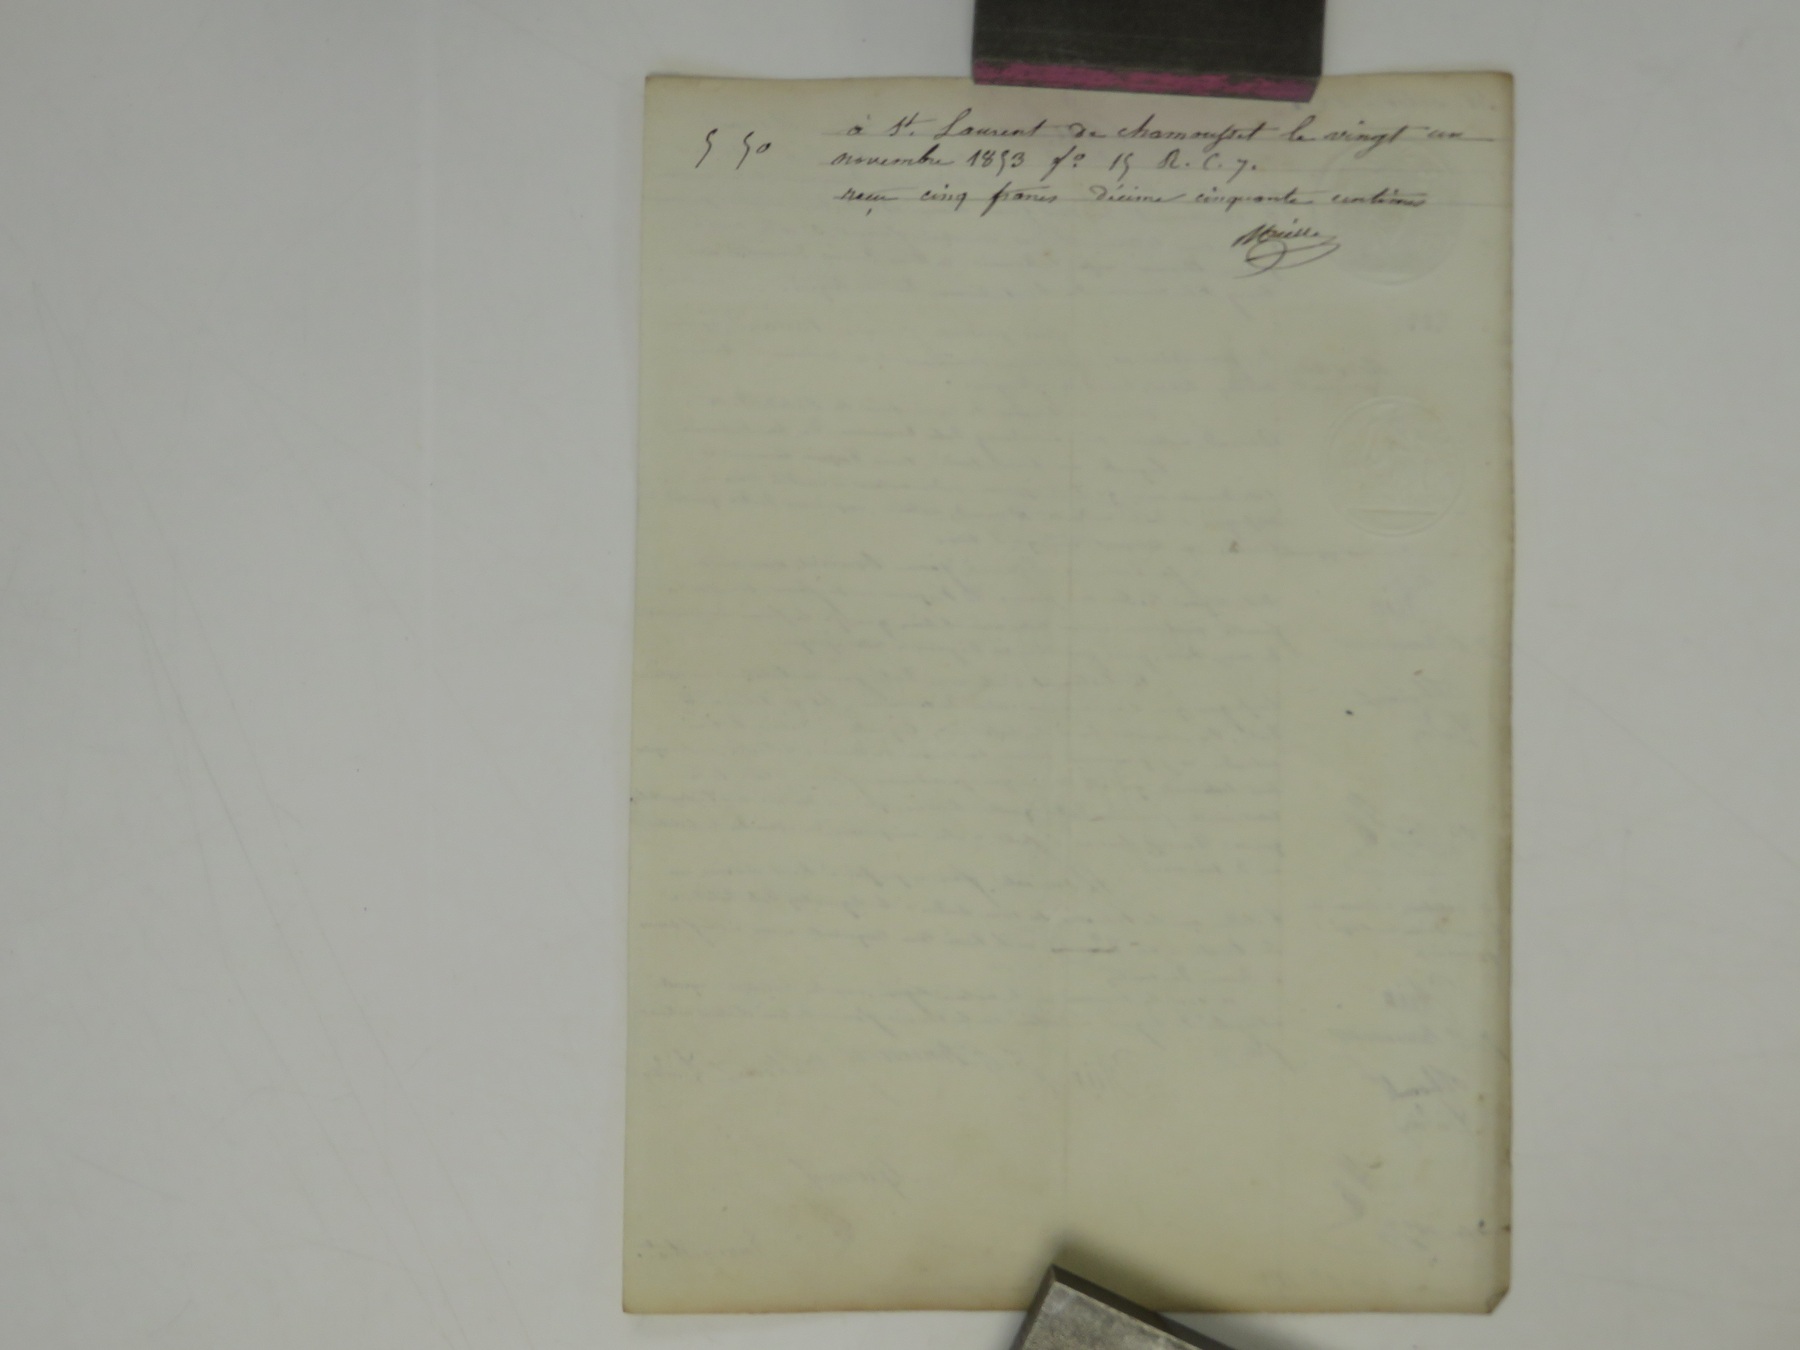 5 50
à St. Laurent de chamousset le vingt un
novembre 1853 fo 15 R. C. 7.
reçu cinq francs décime cinquante centimes